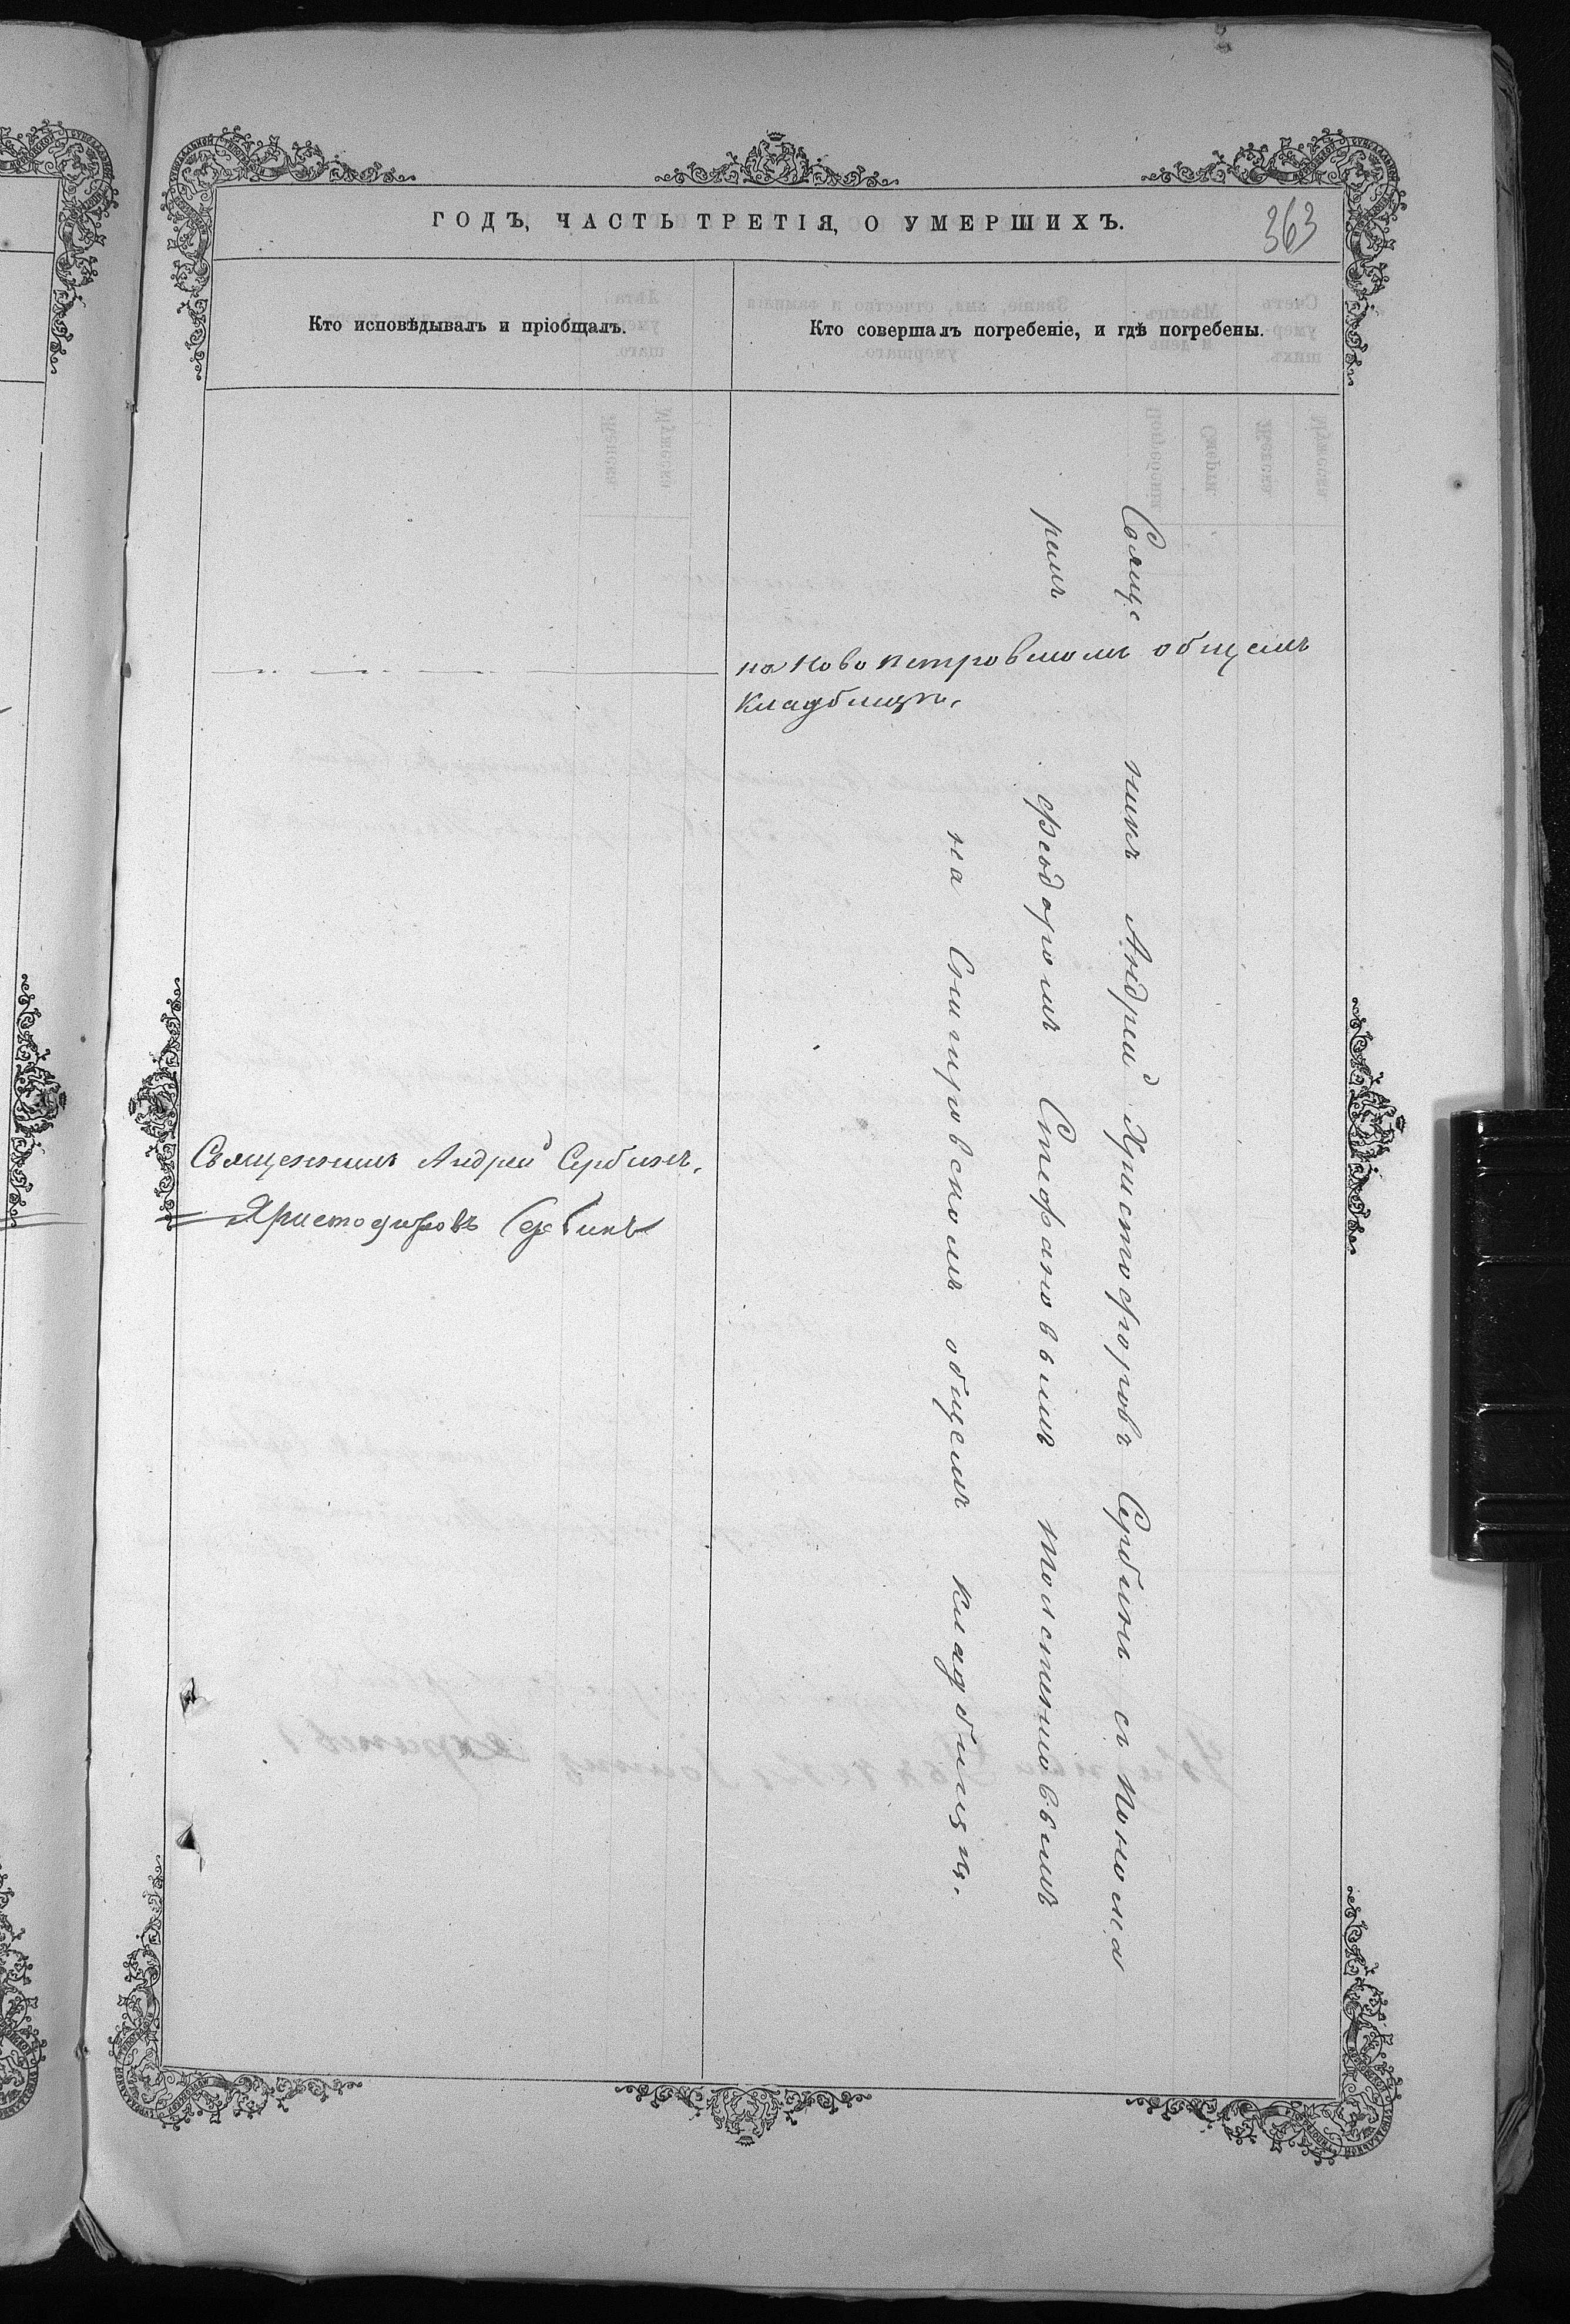 ГОДЪ, ЧАСТЬ ТРЕТІЯ, О УМЕРШИХЪ.
363
Кто исповѣдывалъ и пріобщалъ.
Кто совершалъ погребеніе, и гдѣ погребены.
Священникъ Андрей Сербинъ.
Христофоровъ Сербинъ
на Новопетровскомъ общемъ
кладбищѣ.
Священникъ Андрей Христофоровъ Сербинъ съ понома
ремъ Феодоромъ Стефановымъ
на общемъ кладбищѣ.